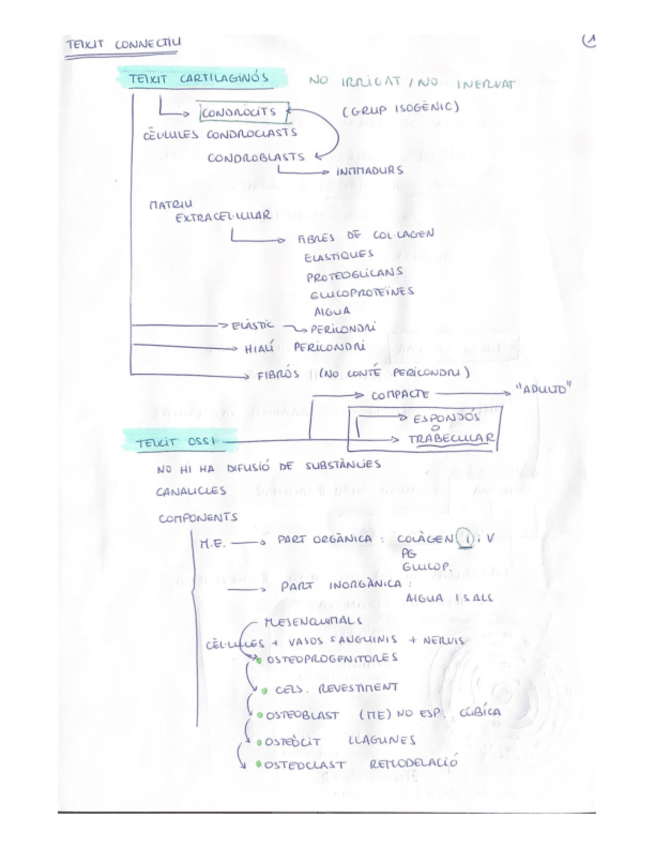 TEIXIT CONNECTIU
1
TEIXIT CARTILAGINÓS NO IRRIGAT / NO INERVAT
CONDRÒCITS (GRUP ISOGÈNIC)
CÈL·LULES CONDROCLASTS
CONDROBLASTS
INMADURS
MATRIU
EXTRACEL·LULAR
FIBRES DE COL·LAGEN
ELASTIQUES
PROTEOGLICANS
GLUCOPROTEÏNES
AIGUA
ELÀSTIC PERICONDRI
HIALÍ PERICONDRI
FIBRÓS (NO CONTÉ PERICONDRI)
COMPACTE "ADULTO"
ESPONJÓS
O
TEIXIT OSSI TRABECULAR
NO HI HA DIFUSIÓ DE SUBSTÀNCIES
CANALICLES
COMPONENTS
M.E. PART ORGÀNICA : COLÀGEN I i V
PG
GLUCOP.
PART INORGÀNICA :
AIGUA I SALS
MESENQUIMALS
CÈL·LULES + VASOS SANGUINIS + NERVIS
OSTEOPROGENITORES
CELS. REVESTIMENT
OSTEOBLAST (ME) NO ESP. CÚBICA
OSTEÒCIT LLAGUNES
OSTEOCLAST REMODELACIÓ